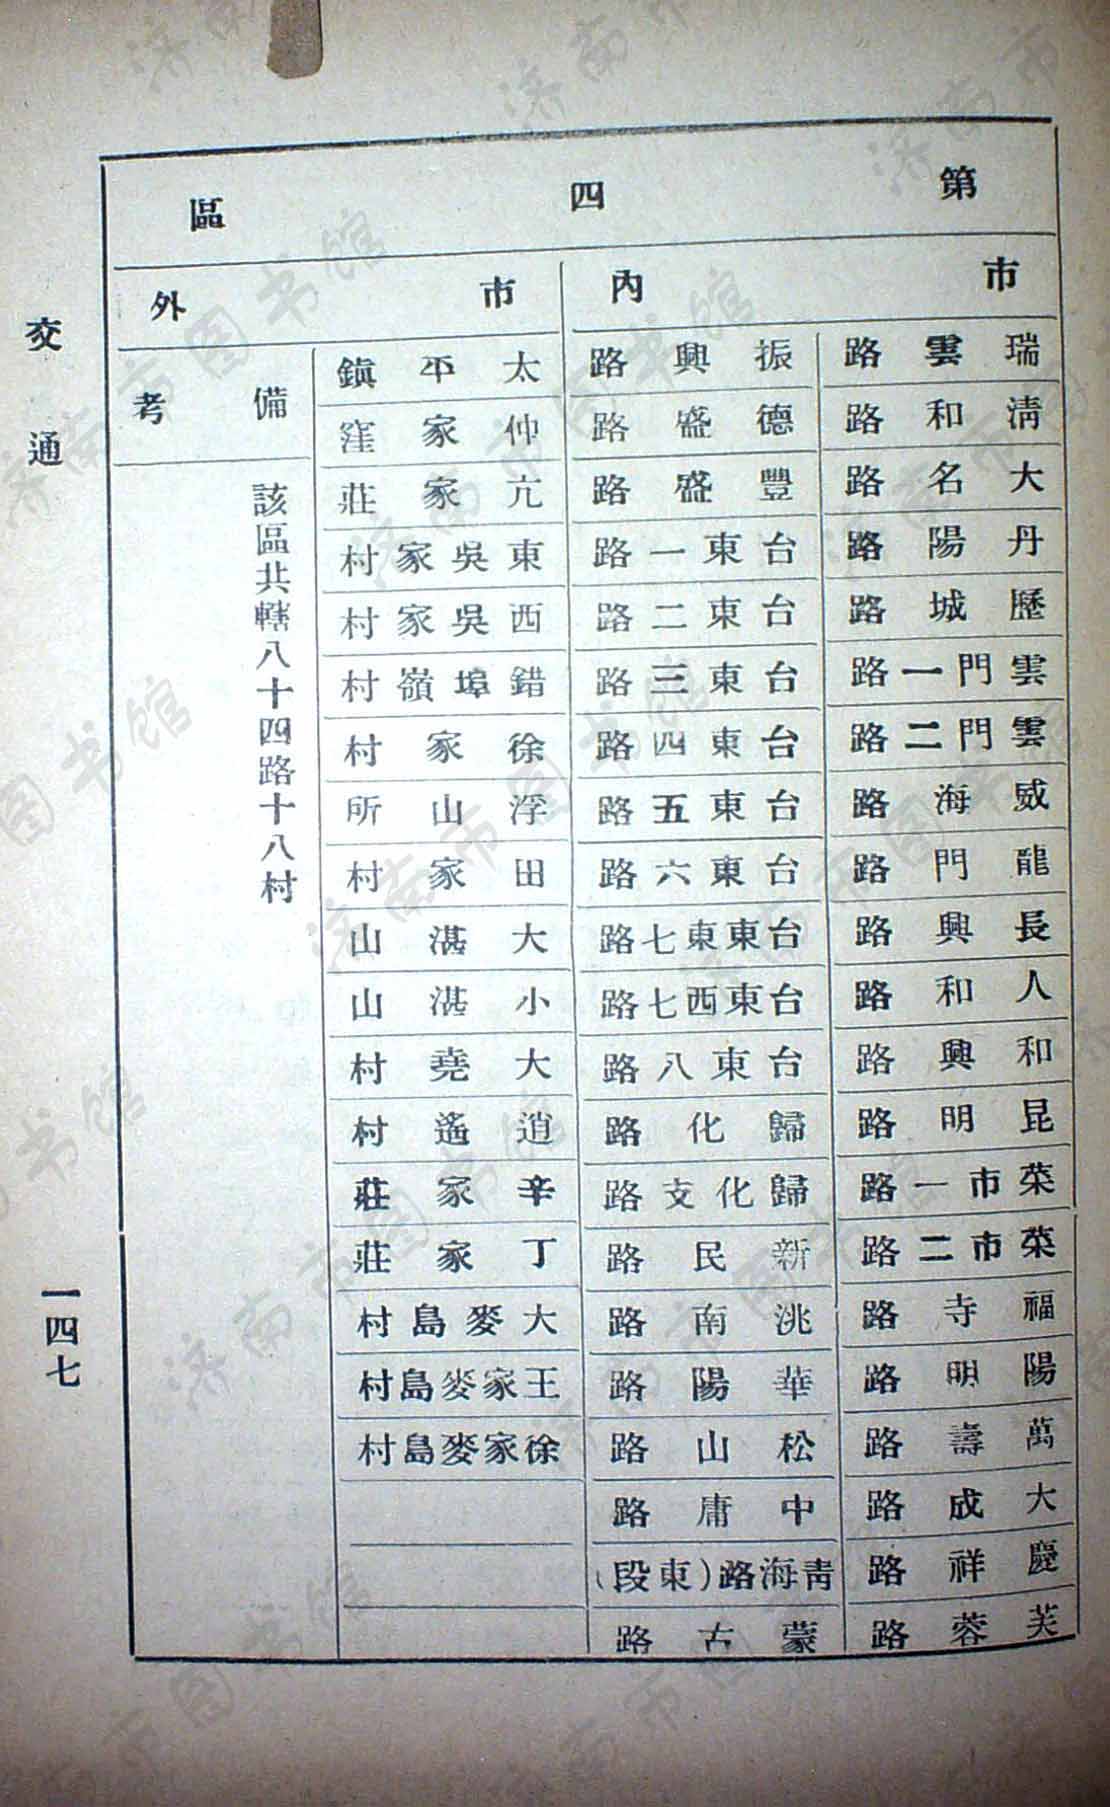 第四區
市內
市外
瑞雲路
清和路
大名路
丹陽路
歷城路
雲門一路
雲門二路
威海路
龍門路
長興路
人和路
和興路
昆明路
菜市一路
菜市二路
福寺路
陽明路
萬壽路
大成路
慶祥路
芙蓉路
振興路
德盛路
豐盛路
台東一路
台東二路
台東三路
台東四路
台東五路
台東六路
台東東七路
台東西七路
台東八路
歸化路
歸化支路
新民路
洮南路
華陽路
松山路
中庸路
青海路(東段)
蒙古路
太平鎮
仲家窪
亢家莊
東吳家村
西吳家村
錯埠嶺村
徐家村
浮山所
田家村
大湛山
小湛山
大堯村
逍遙村
辛家莊
丁家莊
大麥島村
王家麥島村
徐家麥島村
備考
該區共轄八十四路十八村
交通
一四七
济南市图书馆